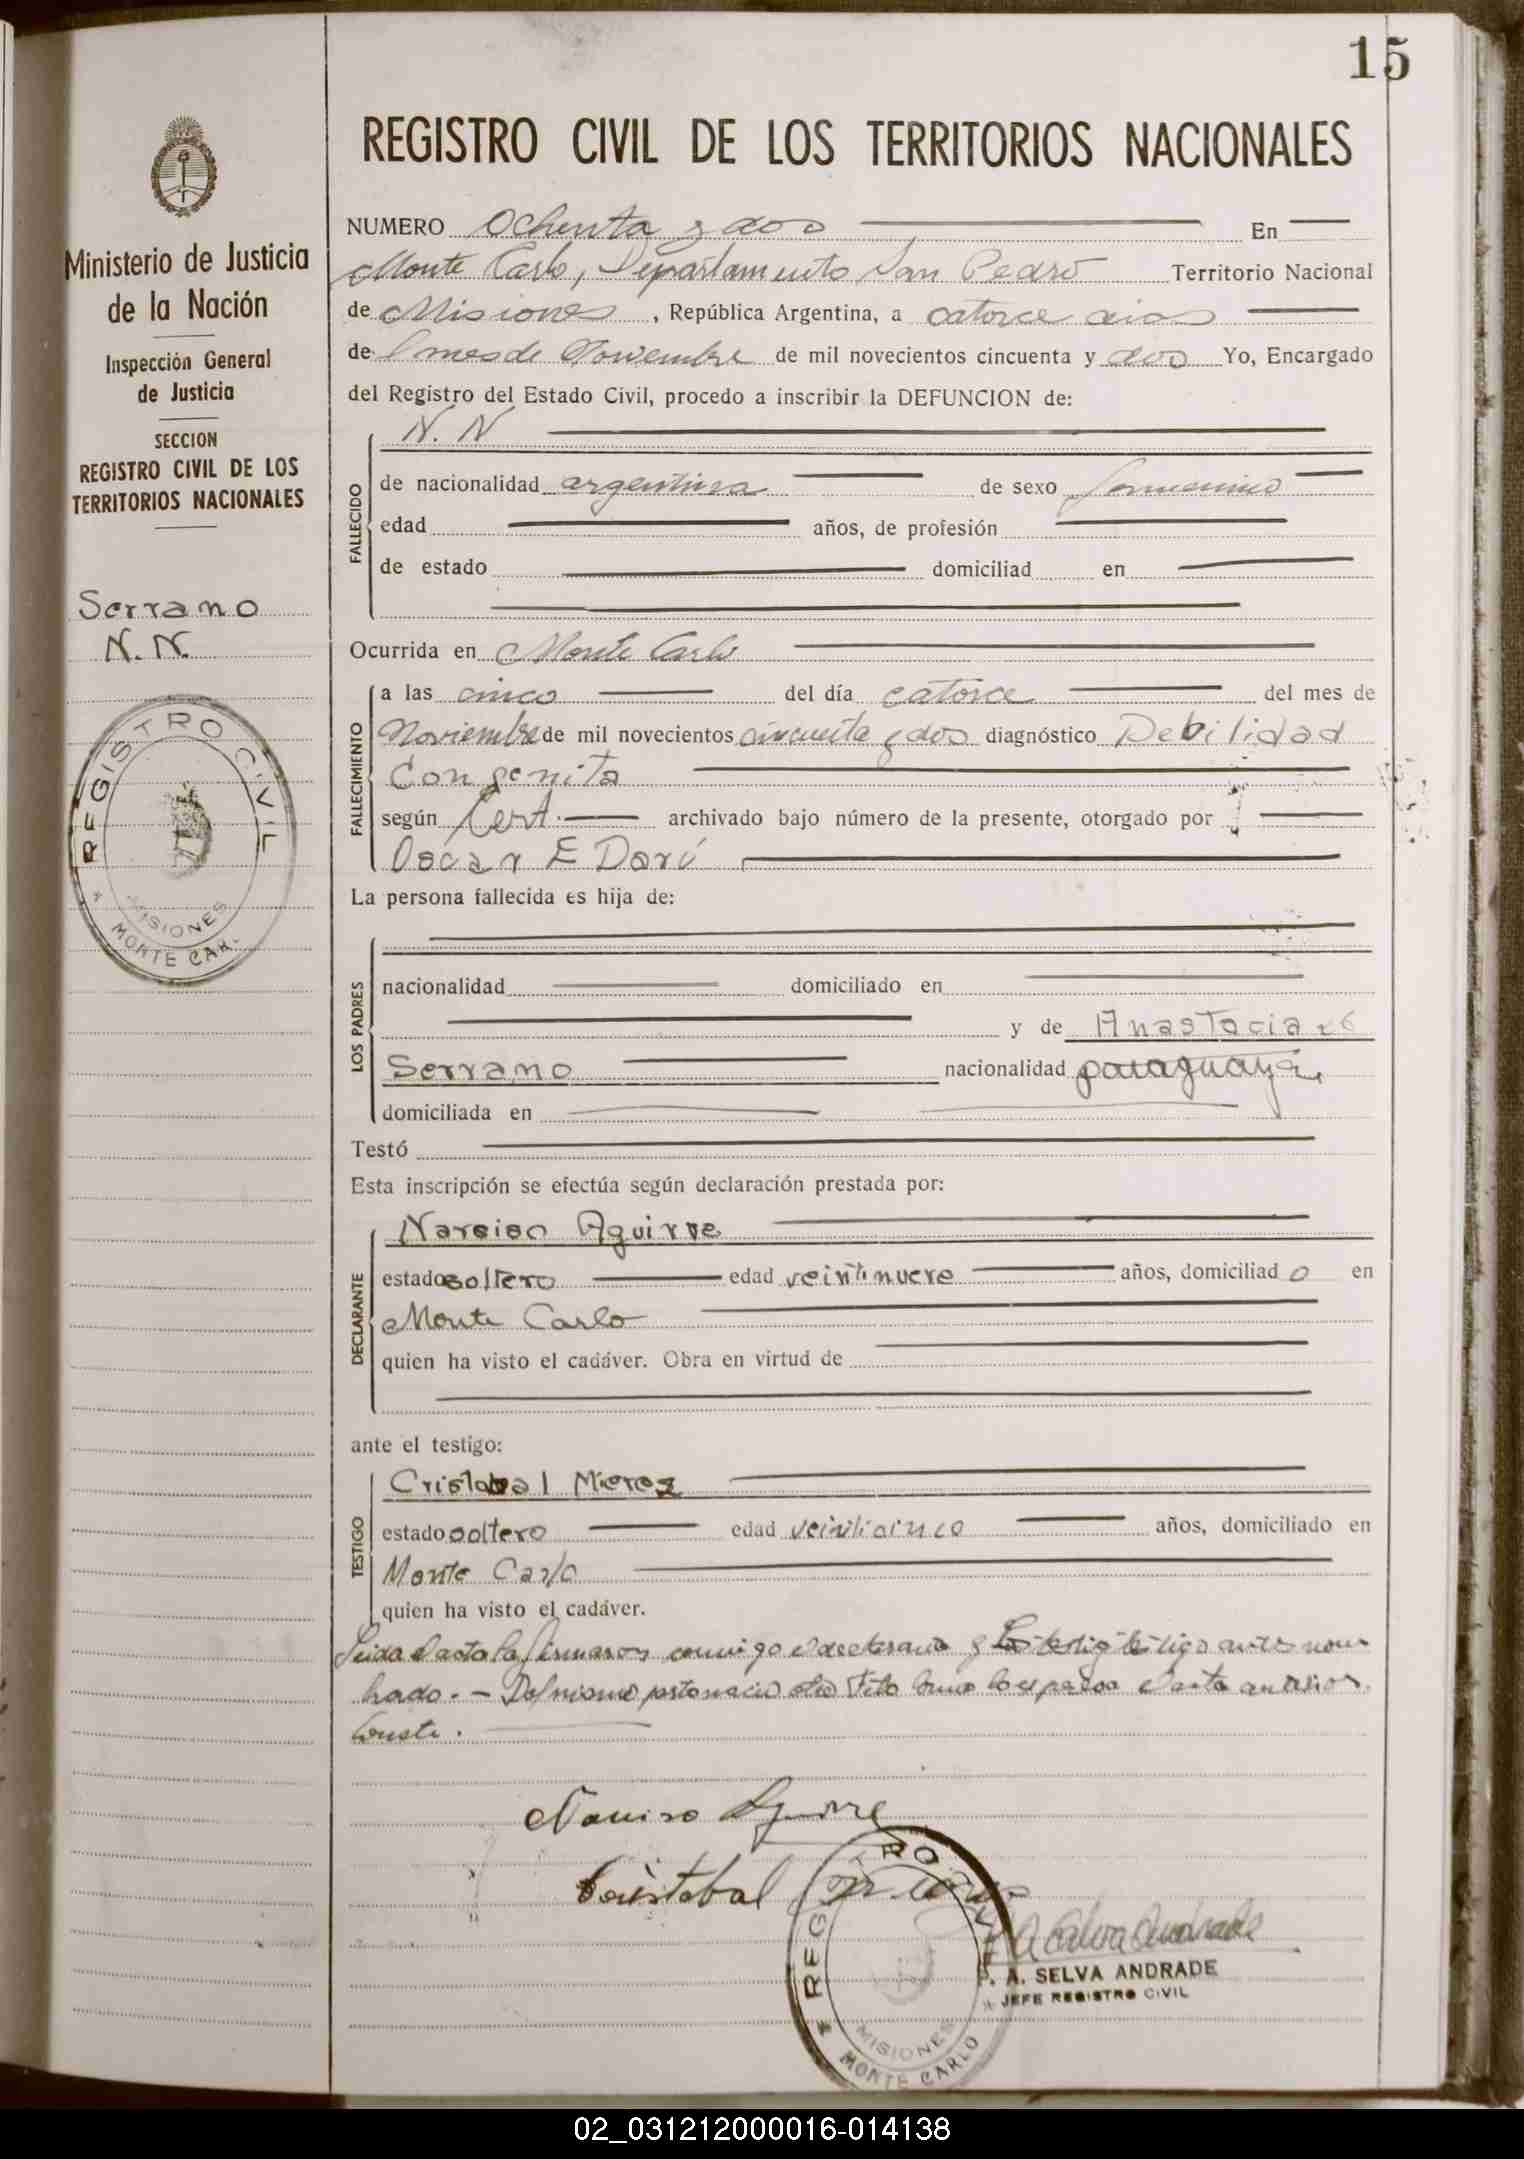 15
REGISTRO CIVIL DE LOS TERRITORIOS NACIONALES
Ministerio de Justicia
de la Nación
Inspección General
de Justicia
SECCION
REGISTRO CIVIL DE LOS
TERRITORIOS NACIONALES
Serrano
N. N.
REGISTRO CIVIL
MISIONES
MONTE CAR.
NUMERO Ochenta y dos En
Monte Carlo, Departamento San Pedro Territorio Nacional
de Misiones, República Argentina, a catorce dias
del mes de Noviembre de mil novecientos cincuenta y dos Yo, Encargado
del Registro del Estado Civil, procedo a inscribir la DEFUNCION de:
N. N
FALLECIDO
de nacionalidad argentina de sexo femenino
edad años, de profesión
de estado domiciliad en
Ocurrida en Monte Carlo
FALLECIMIENTO
a las cinco del día catorce del mes de
Noviembre de mil novecientos cincuenta y dos diagnóstico Debilidad
Congenita
según Cert. archivado bajo número de la presente, otorgado por
Oscar E Darú
La persona fallecida es hija de:
LOS PADRES
nacionalidad domiciliado en
y de Anastacia
Serrano nacionalidad paraguaya
domiciliada en
Testó
Esta inscripción se efectúa según declaración prestada por:
DECLARANTE
Narciso Aguirre
estado soltero edad veintinueve años, domiciliado en
Monte Carlo
quien ha visto el cadáver. Obra en virtud de
ante el testigo:
TESTIGO
Cristobal Mierez
estado soltero edad veinticinco años, domiciliado en
Monte Carlo
quien ha visto el cadáver.
Leida el acta la firmaron conmigo el declarante y testigo antes nom
brado. - Del mismo parto nacio otro feto como lo expresa el acta anterior.
Conste.
Narciso Aguirre
Cristobal
REG RO
MISIONES
MONTE CARLO
A Selva Andrade
P. A. SELVA ANDRADE
JEFE REGISTRO CIVIL
02_031212000016-014138